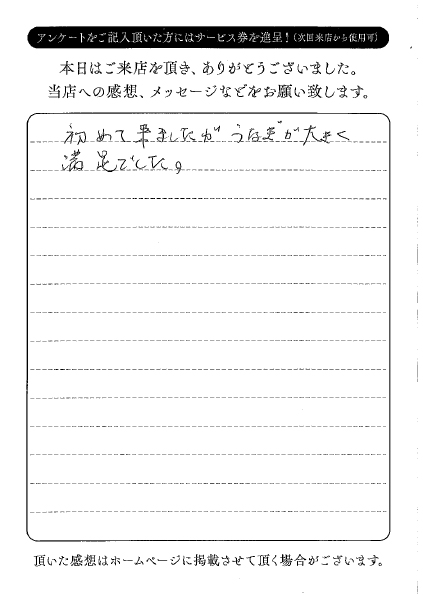 アンケートをご記入頂いた方にはサービス券を進呈！(次回来店から使用可)
本日はご来店を頂き、ありがとうございました。
当店への感想、メッセージなどをお願い致します。
初めて来ましたが うなぎが大きく
満足でした。
頂いた感想はホームページに掲載させて頂く場合がございます。